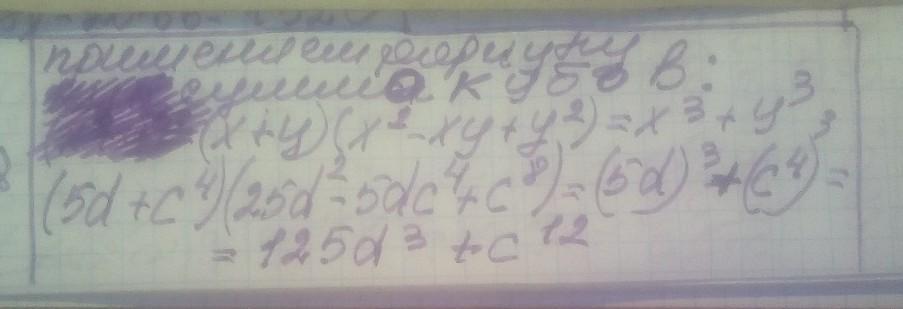 применяем формулу
сумма кубов:
(x+y)(x²-xy+y²)=x³+y³
(5d+c⁴)(25d²-5dc⁴+c⁸)=(5d)³+(c⁴)³=
=125d³+c¹²